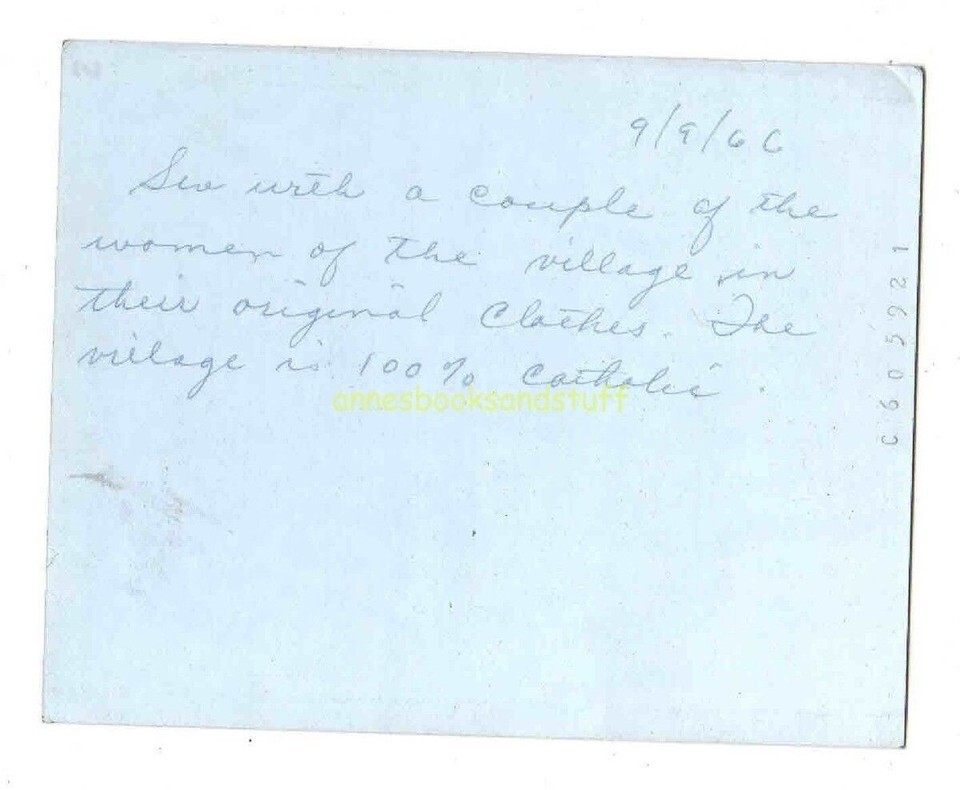 9/9/66
with a couple of the
women of the village in
their original clothes. The
village is 100% Catholic.
annesbooksandstuff
C605921